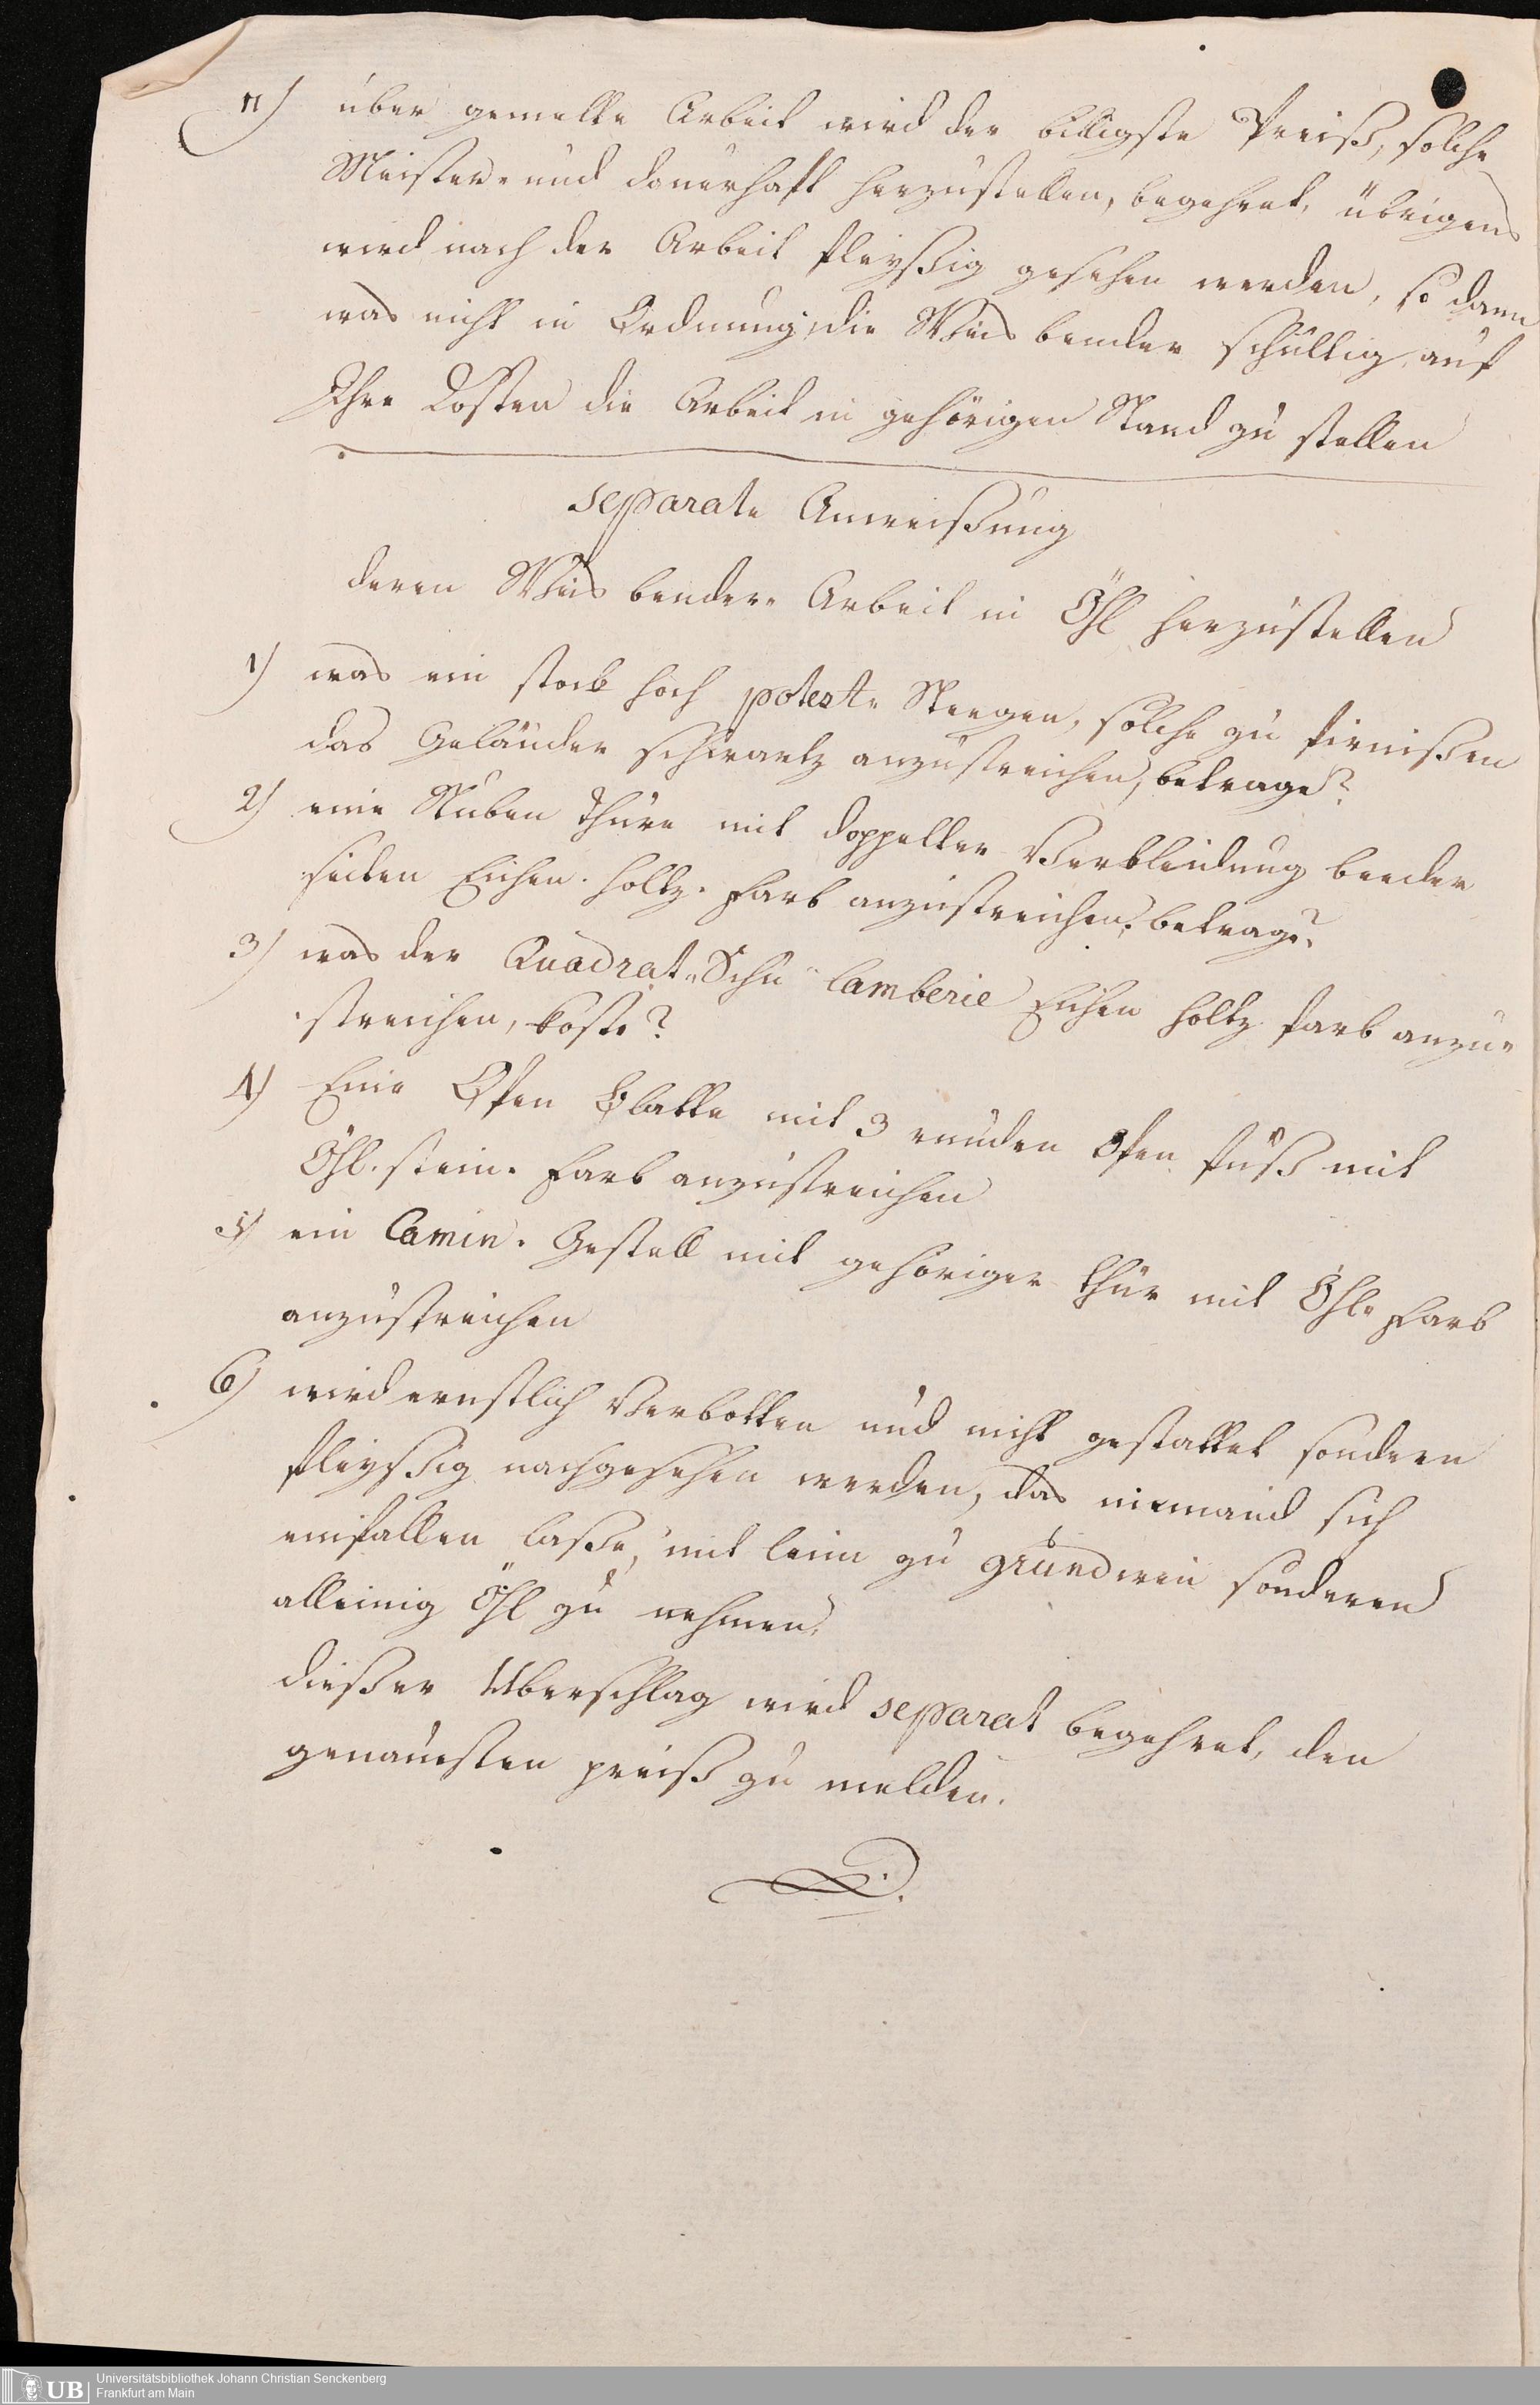 11) über gemelte Arbeit wird der billigste Preiß, solche
Meister- und dauerhaft herzustellen, begehret, übrigens
wird nach der Arbeit fleyßig gesehen werden, so dann
was nicht in Ordnung, die Weisbender schultig, auf
Ihre Kosten die Arbeit in gehörigen Stand zu stellen
separate Anweißung
deren Weisbender Arbeit in Öhl herzustellen
1) was ein stock hoch potest Steegen, solche zu firnißen
das Geländer schwartz anzustreichen, betrage?
2) eine Stuben thüre mit doppelter Verbleidung beeder
seiten Eichen-holtz-farb anzustreichen, betrage?
3) was der Quadrat-Schu lamberie Eichen holtz farb anzu-
streichen, koste?
4) Eine Ofen Platte mit 3 runden Ofen fuß mit
Öhl-stein-farb anzustreichen
5) ein Camin-Gestell mit gehöriger thür mit Öhl-farb
anzustreichen
6) wird ernstlich Verbotten und nicht gestattet sondern
fleyßig nachgesehen werden, das niemand sich
einfallen laße, mit leim zu gründiren sonderen
alleinig Öhl zu nehmen.
dießer Uberschlag wird separat begehret, den
genauesten preiß zu melden.
UB
Universitätsbibliothek Johann Christian Senckenberg
Frankfurt am Main